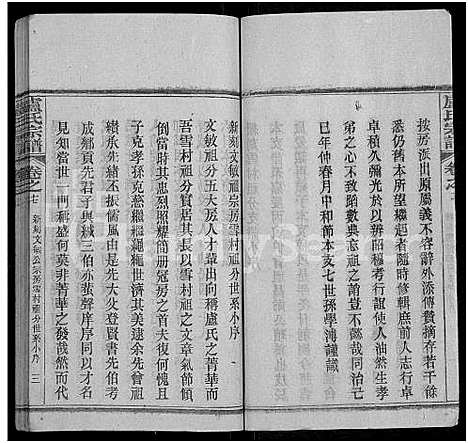 盧氏宗譜 卷之
按房派出原屬義不容辭外添傳贊摘存若干餘
悉仍舊本所望繼起者隨時修輯庶前人志行卓
卓積久彌光於以啟後昆即可使人油然生孝
弟之心不致貽誚數典忘祖之前豈不懿哉同治己
巳年仲春月中和節本支七世孫學海謹識
新刻文敏祖宗房雪村祖分世系小序
文敏祖分五大房人才輩出向稱盧氏之菁華而
吾雪村祖分實居其長以雪村祖之文章氣節傾
倒當時其志烈昭耀簡册冠房之首夫復何愧且
子孝孫克慈繼繼繩繩世濟其美逮余先曾祖
續承先緒不振儒風由是民先大人登賢書先伯
成鄉貢先君子與緘三伯亦蜚聲庠序同以才名
見知當世一門科盛何莫非菁華之發哉然而代
盧氏宗譜 卷之七 新刻文敏公宗房雪村祖分世系小序 三